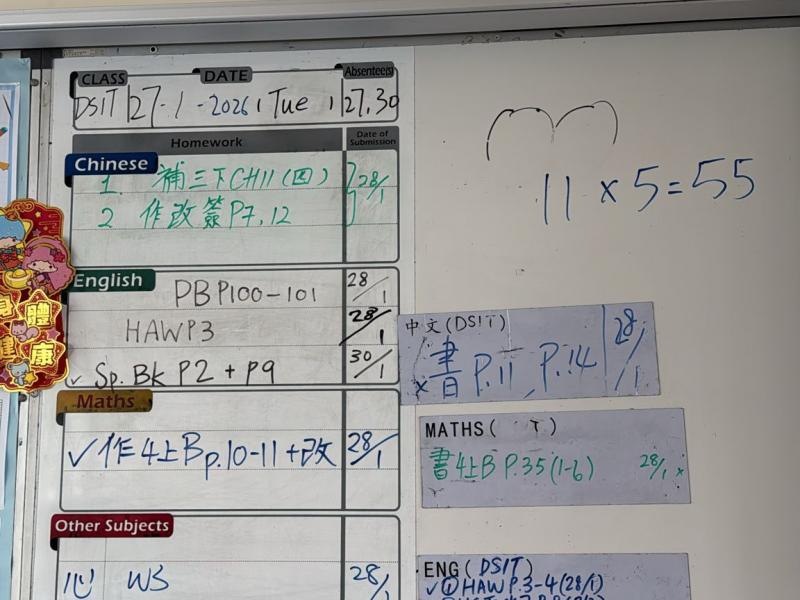 CLASS DATE Absentee(s)
DSIT 27-1-2026 (Tue) 27,30
Homework Date of Submission
Chinese
1 補三下CH11(四) 28/1
2 作改簽P7,12
English
PB P100-101 28/1
HAW P3 28/1
✓ Sp. Bk P2 + P9 30/1
Maths
✓作4上B p.10-11+改 28/1
Other Subjects
心 W3 28/1
11 × 5 = 55
中文(DSIT)
×書 P.11, P.14 28/1
MATHS( T)
書4上B P.35(1-6) 28/1 ×
ENG(DSIT)
✓① HAW P.3-4(28/1)
健 體 康